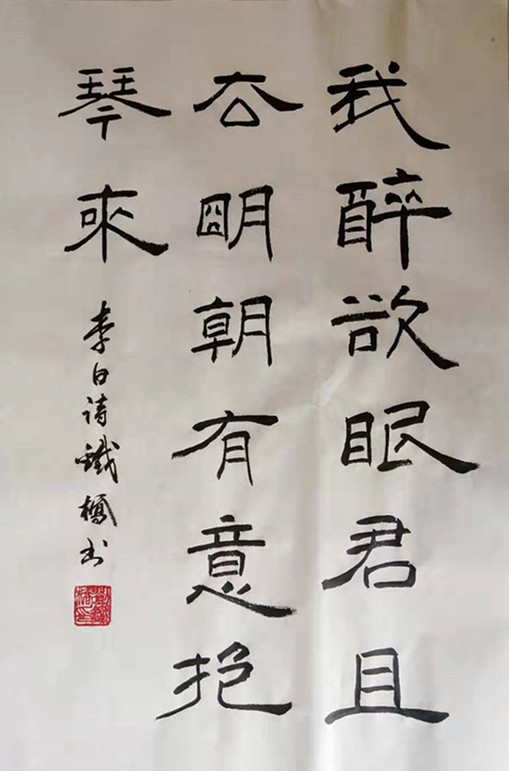 我醉欲眠君且
去明朝有意抱
琴來
李白诗鐵书